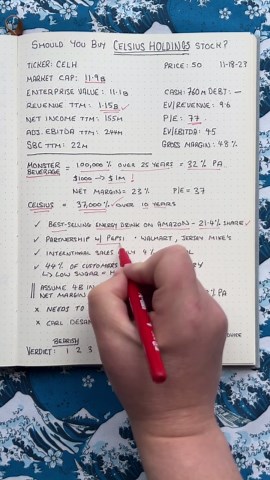 SHOULD YOU BUY CELSIUS HOLDINGS STOCK?
TICKER: CELH PRICE: 50 11-18-23
MARKET CAP: 11.9B
ENTERPRISE VALUE: 11.1B CASH: 760M DEBT: —
REVENUE TTM: 1.15B EV/REVENUE: 9.6
NET INCOME TTM: 155M P/E: 77
ADJ. EBITDA TTM: 244M EV/EBITDA: 45
SBC TTM: 22M GROSS MARGIN: 48%
MONSTER BEVERAGE = 100,000% OVER 25 YEARS = 32% PA
$1000 → $1M
NET MARGIN: 23% P/E = 37
CELSIUS = 37,000% OVER 10 YEARS
✓ BEST-SELLING ENERGY DRINK ON AMAZON - 21.4% SHARE
✓ PARTNERSHIP W/ PEPSI • WALMART, JERSEY MIKE'S
✓ INTERNATIONAL SALES
✓ 44% OF CUSTOMERS
↳ LOW SUGAR =
ASSUME 4B IN
NET MARGIN % PA
x NEEDS TO
x CARL DESAN
BEARISH
VERDICT: 1 2 3